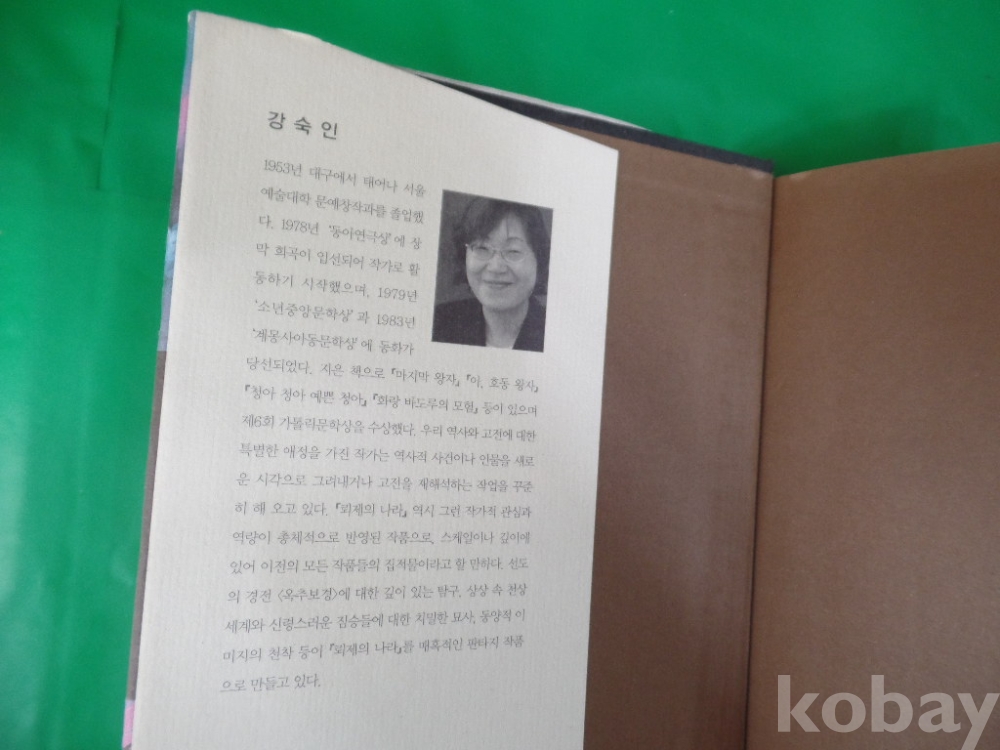 강숙인
1953년 대구에서 태어나 서울
예술대학 문예창작과를 졸업했
다. 1978년 '동아연극상'에 장
막 희곡이 입선되어 작가로 활
동하기 시작했으며, 1979년
'소년중앙문학상'과 1983년
'계몽사아동문학상'에 동화가
당선되었다. 지은 책으로 『마지막 왕자』 『아, 호동 왕자』
『청아 청아 예쁜 청아』 『화랑 바도루의 모험』 등이 있으며
제6회 가톨릭문학상을 수상했다. 우리 역사와 고전에 대한
특별한 애정을 가진 작가는 역사적 사건이나 인물을 새로
운 시각으로 그려내거나 고전을 재해석하는 작업을 꾸준
히 해 오고 있다. 『뢰제의 나라』 역시 그런 작가적 관심과
역량이 총체적으로 반영된 작품으로, 스케일이나 깊이에
있어 이전의 모든 작품들의 집적물이라고 할 만하다. 선도
의 경전 〈옥추보경〉에 대한 깊이 있는 탐구, 상상 속 천상
세계와 신령스러운 짐승들에 대한 치밀한 묘사, 동양적 이
미지의 천착 등이 『뢰제의 나라』를 매혹적인 판타지 작품
으로 만들고 있다.
kobay